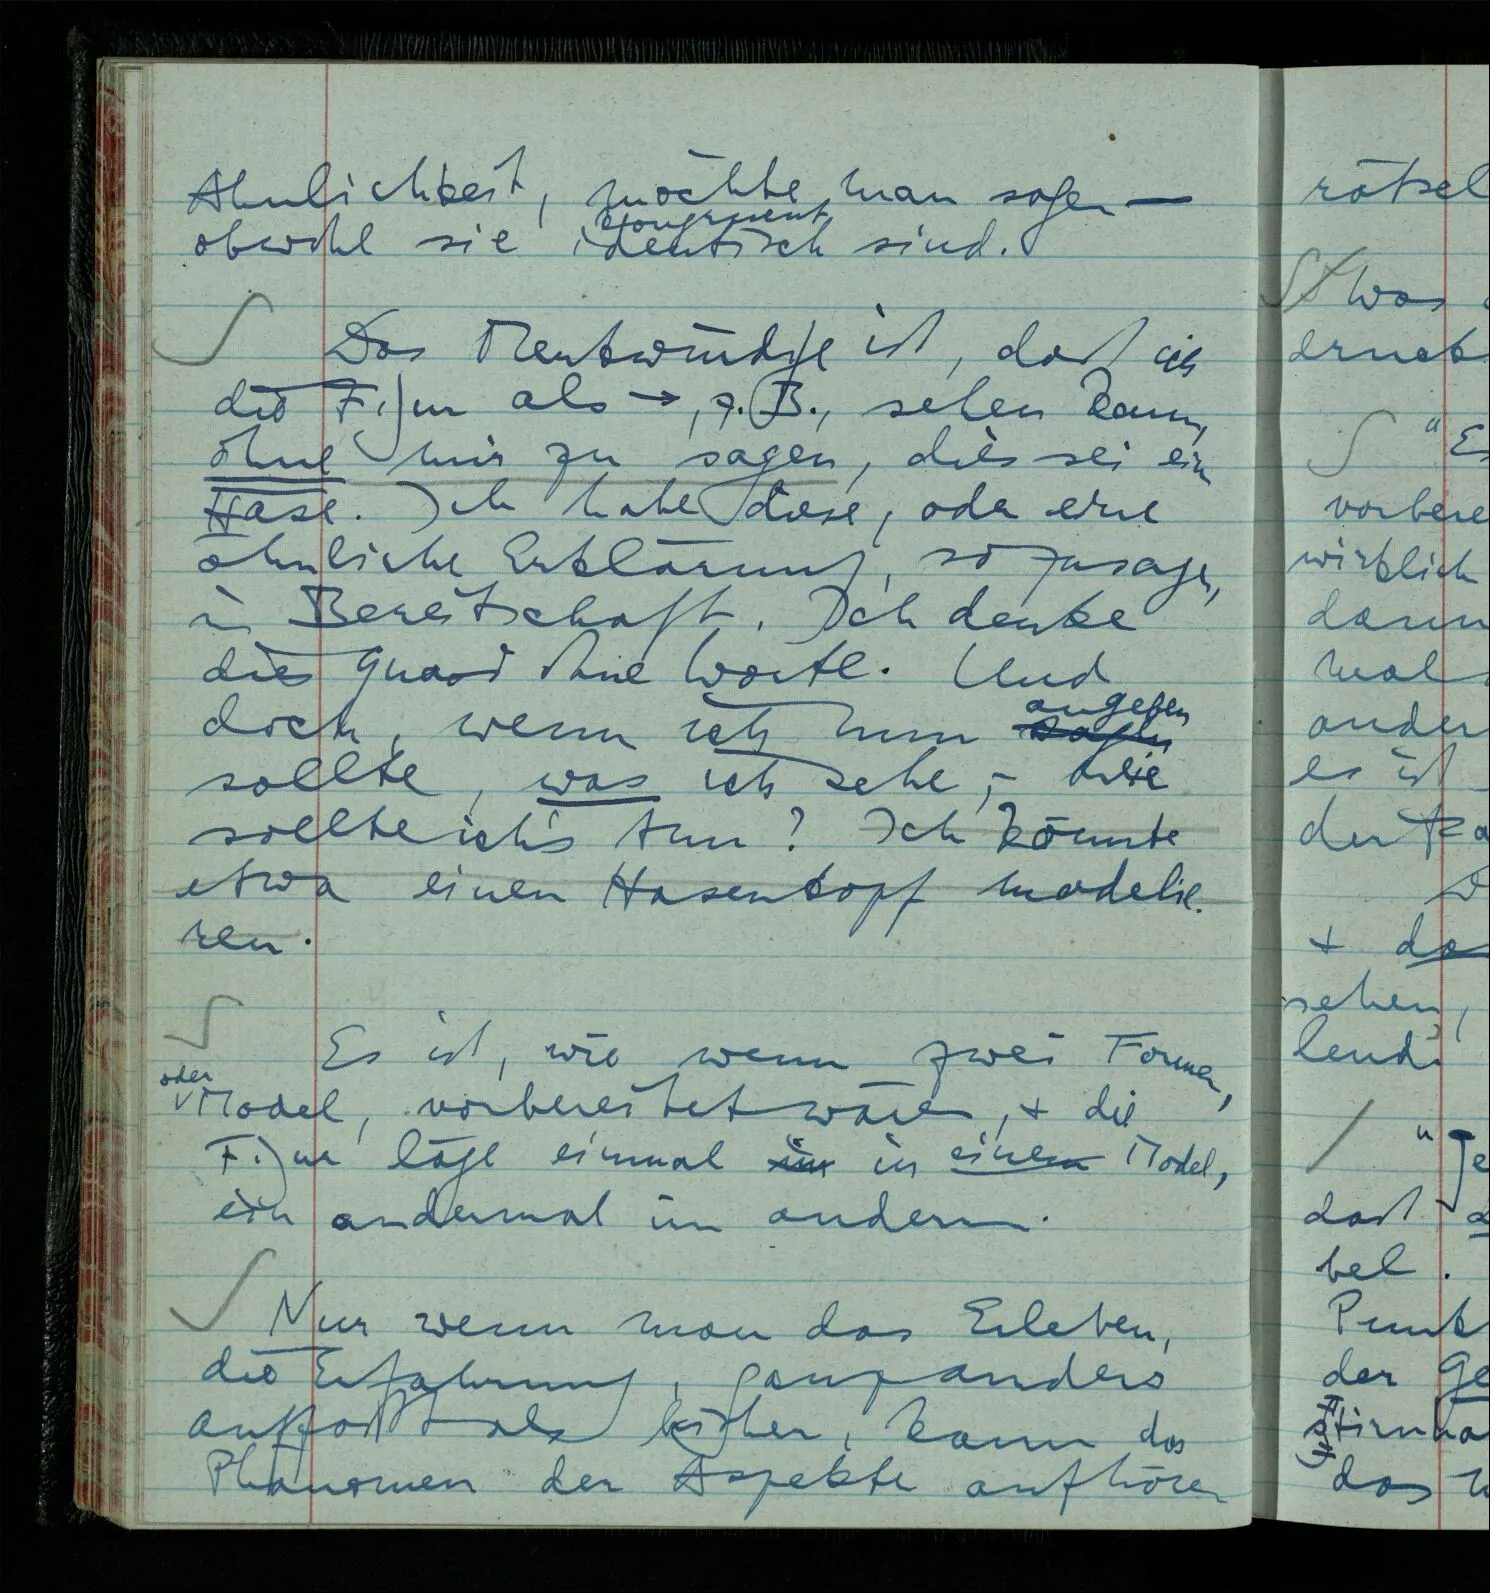 Ähnlichkeit, möchte man sagen —
kongruent
obwohl sie identisch sind.
∫ Das Merkwürdige ist, daß ich
die Figur als →, z.B., sehen kann,
ohne mir zu sagen, dies sei ein
Hase. Ich habe diese, oder eine
ähnliche Erklärung, sozusagen,
in Bereitschaft. Ich denke
dies quasi ohne Worte. Und
angeben
doch, wenn ich nun sagen
sollte, was ich sehe, – wie
sollte ich's tun? Ich könnte
etwa einen Hasenkopf modelie-
ren.
∫ Es ist, wie wenn zwei Formen,
oder
Model, vorbereitet wären, & die
Figur läge einmal im in einem Model,
ein andermal im andern.
∫ Nur wenn man das Erleben,
die Erfahrung, ganz anders
auffaßt als bisher, kann das
Phänomen der Aspekte aufhören
rätsel
∫ Was
druck
∫ "Es
vorbere
wirklich
dann
mal
ander
es ist
der
& da
sehen,
lend.
/ "Ge
daß
bel.
Punkt
der Ge
Stirnha
das